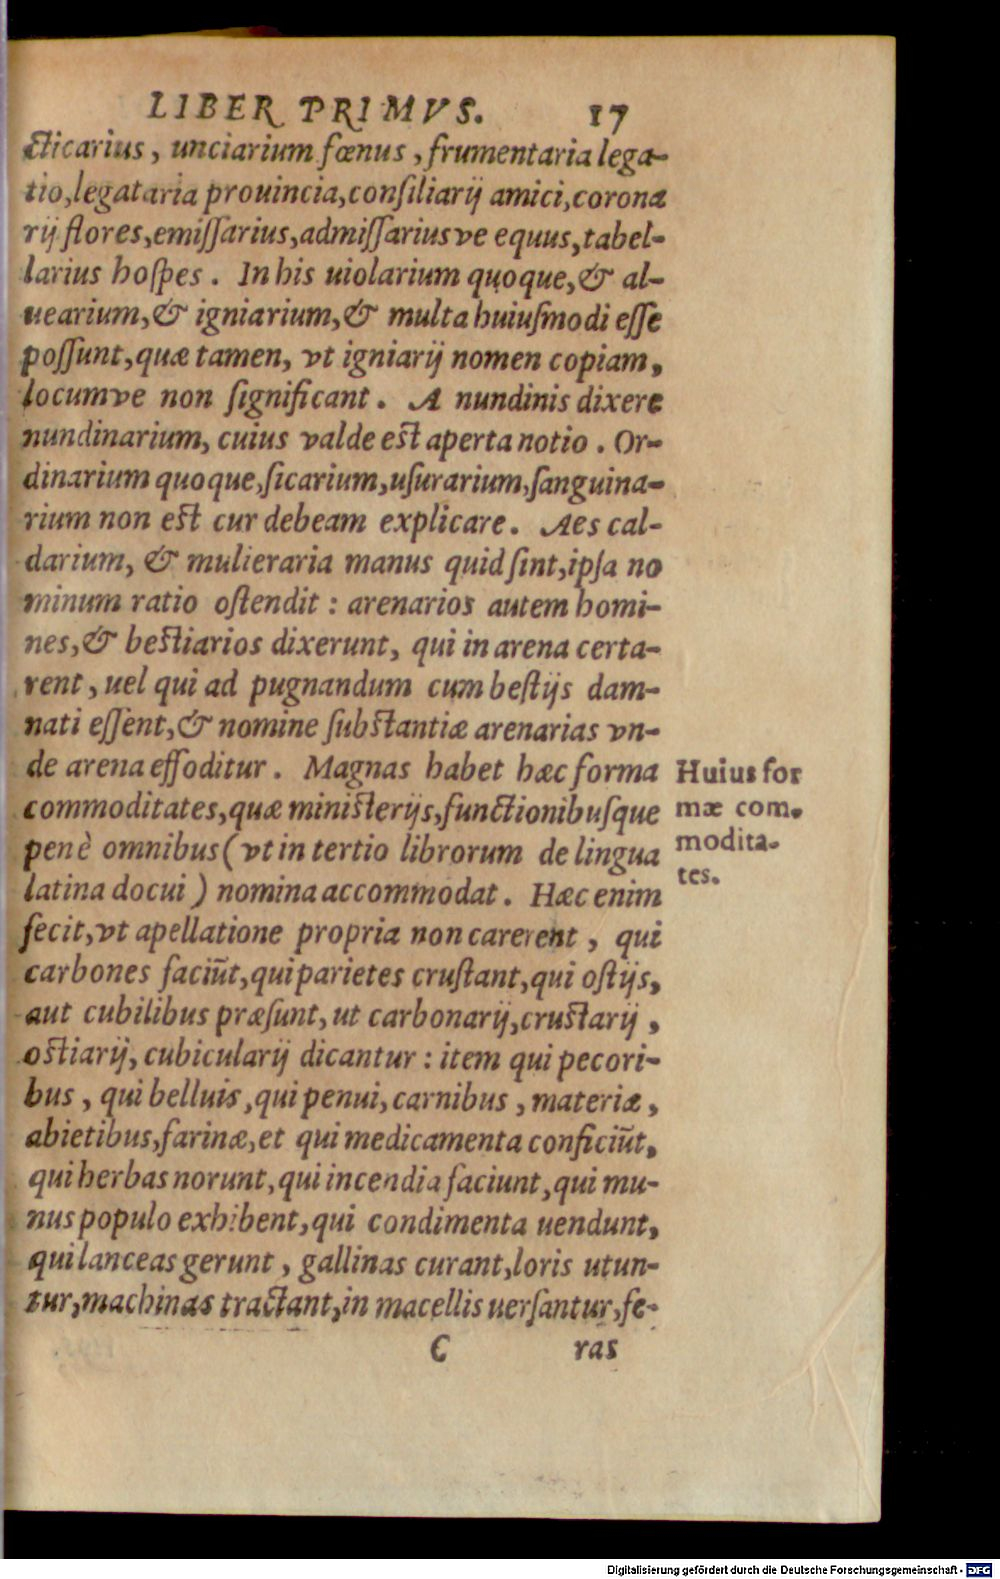 LIBER PRIMVS. 17
cticarius, unciarium fœnus, frumentaria lega-
tio, legataria prouincia, consiliarij amici, corona
rij flores, emissarius, admissariusve equus, tabel-
larius hospes. In his uiolarium quoque, & al-
uearium, & igniarium, & multa huiusmodi esse
possunt, quæ tamen, vt igniarij nomen copiam,
locumve non significant. A nundinis dixere
nundinarium, cuius valde est aperta notio. Or-
dinarium quoque, sicarium, usurarium, sanguina-
rium non est cur debeam explicare. Aes cal-
darium, & mulieraria manus quid sint, ipsa no
minum ratio ostendit : arenarios autem homi-
nes, & bestiarios dixerunt, qui in arena certa-
rent, uel qui ad pugnandum cum bestijs dam-
nati essent, & nomine substantiæ arenarias vn-
de arena effoditur. Magnas habet hæc forma
commoditates, quæ ministerijs, functionibusque
penè omnibus (vt in tertio librorum de lingua
latina docui) nomina accommodat. Hæc enim
fecit, vt apellatione propria non carerent, qui
carbones faciūt, qui parietes crustant, qui ostijs,
aut cubilibus præsunt, ut carbonarij, crustarij,
ostiarij, cubicularij dicantur : item qui pecori-
bus, qui belluis, qui penui, carnibus, materiæ,
abietibus, farinæ, et qui medicamenta conficiūt,
qui herbas norunt, qui incendia faciunt, qui mu-
nus populo exhibent, qui condimenta uendunt,
qui lanceas gerunt, gallinas curant, loris utun-
tur, machinas tractant, in macellis uersantur, fe-
C ras
Huius for
mæ com.
modita-
tes.
Digitalisierung gefördert durch die Deutsche Forschungsgemeinschaft - DFG